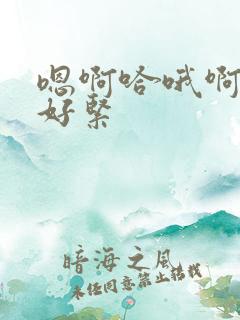 嗯啊哈哦啊
好緊
暗海之风
未经同意禁止转载